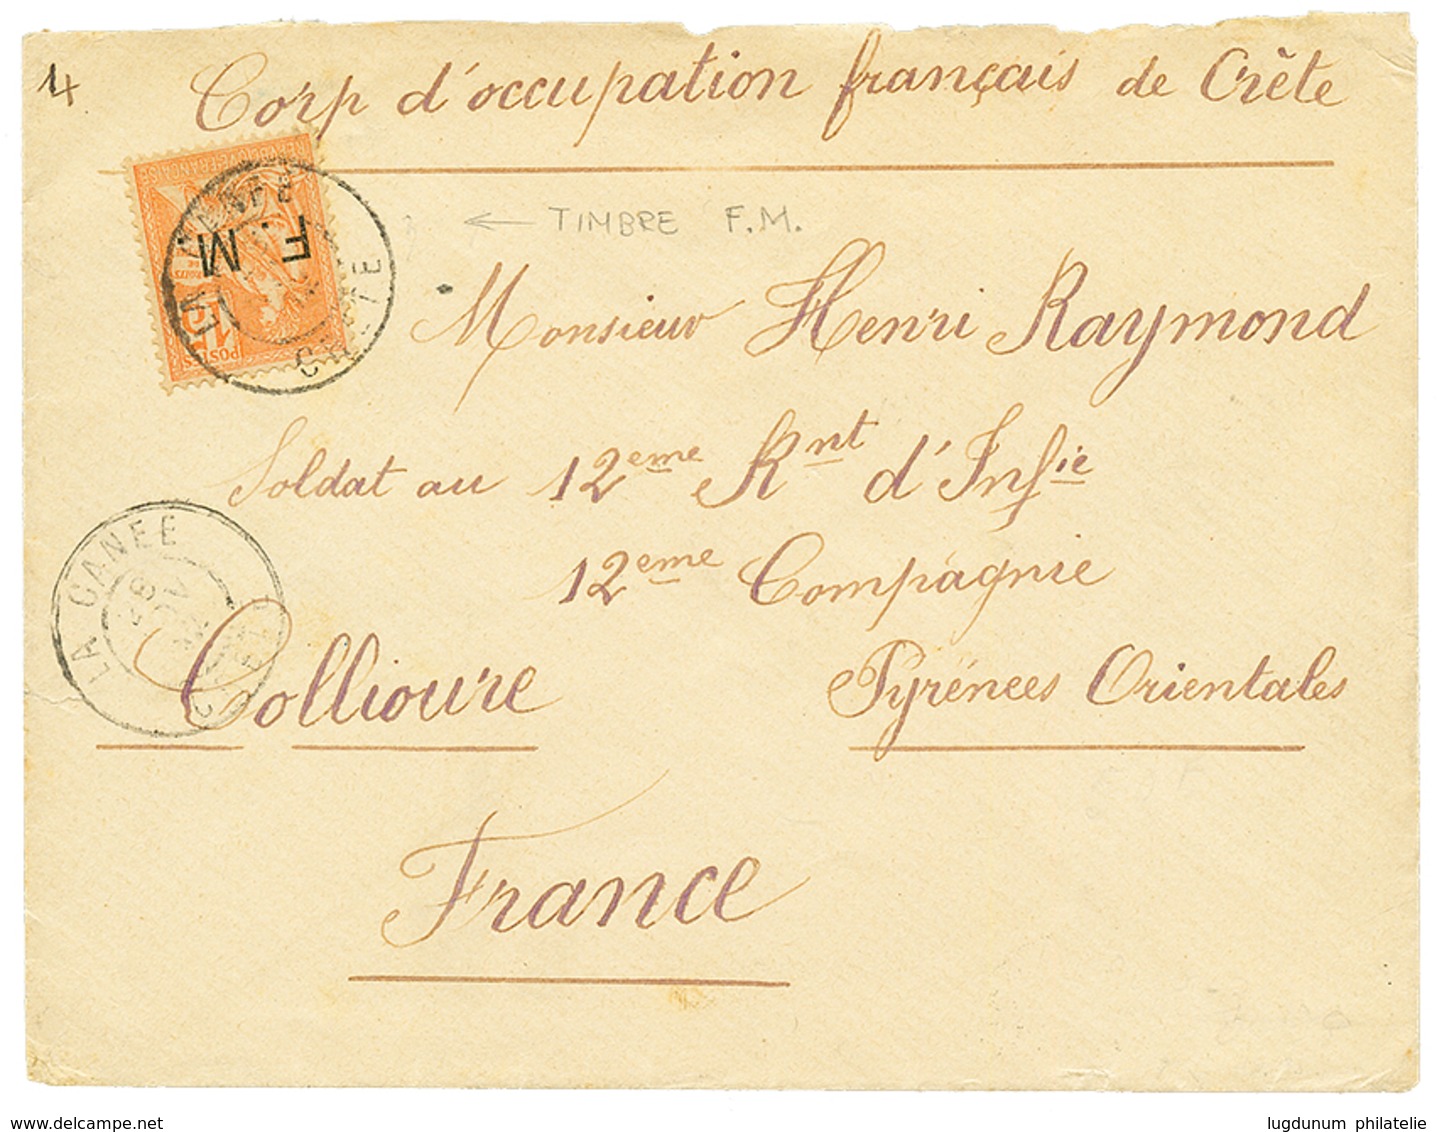 14
Corp d'occupation français de Crête
← TIMBRE F.M.
F.M
15
POSTES
LA CANÉE
CRÈTE
Monsieur Henri Raymond
Soldat au 12eme Rnt d'Infie
12eme Compagnie
LA CANÉE
28
NOV
CRÈTE
Collioure Pyrénees Orientales
France
delcampe.net
lugdunum philatelie